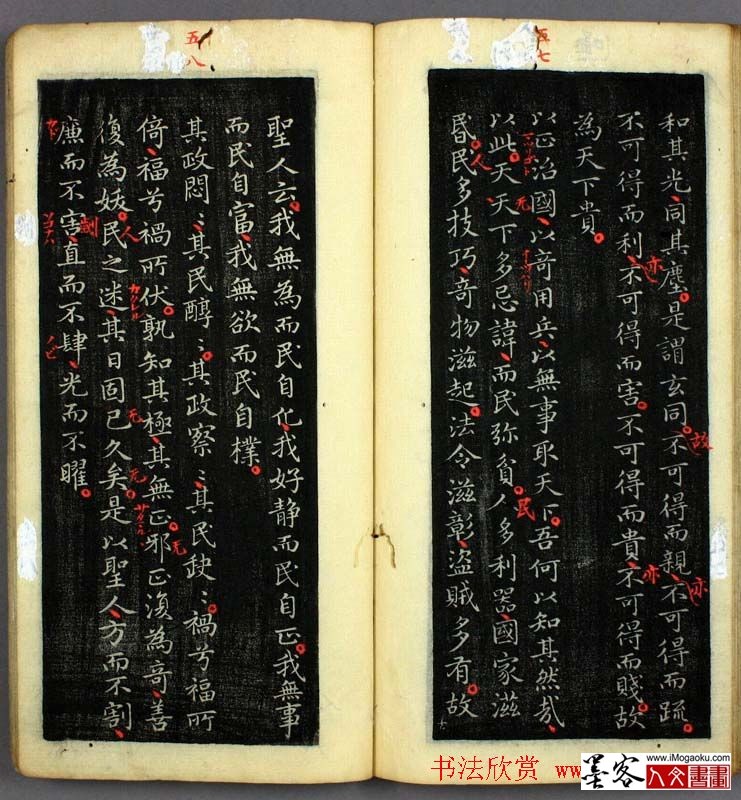 五七
和其光、同其塵。是謂玄同。不可得而親、不可得而疏。
故
亦
不可得而利、不可得而害。不可得而貴、不可得而賤。故
亦
亦
為天下貴。
以正治國、以奇用兵、以無事取天下。吾何以知其然哉、
以此。天、天下多忌諱、而民弥貧。人多利器、國家滋
无
民
昬。民多技巧、奇物滋起。法令滋彰、盗賊多有。故
人
五八
聖人云、我無為而民自化、我好静而民自正、我無事
而民自富、我無欲而民自樸。
其政悶〻其民醇〻其政察〻其民缺〻禍兮福所
倚、福兮禍所伏。孰知其極、其無正。邪正復為奇、善
无
復為妖。民之迷、其日固已久矣。是以聖人方而不割、
人
无
无
廉而不害、直而不肆、光而不曜。
书法欣赏 ww
墨客
人文書畫
www.iMogaoku.com